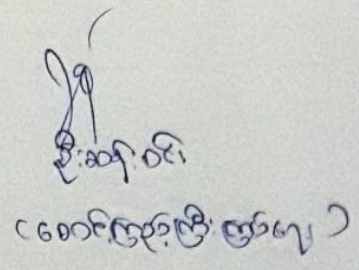 ဦးဆန်းဝင်း
(စောင့်ကြည့်ကြီးကြပ်ရေး)